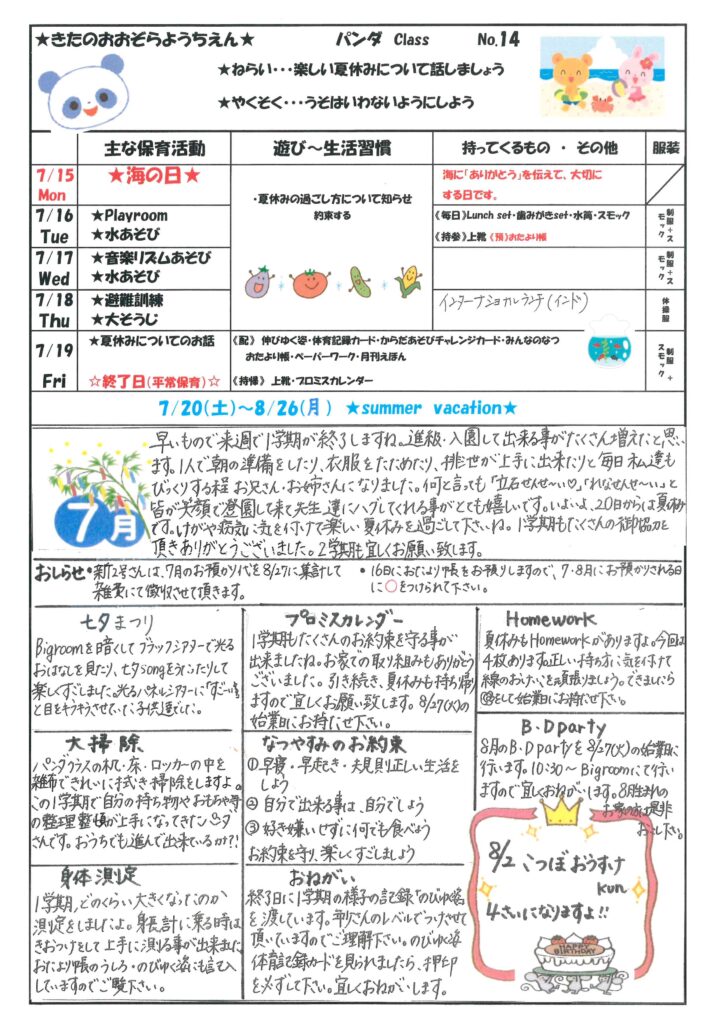 ★きたのおおぞらようちえん★ パンダ Class No.14
★ねらい・・・楽しい夏休みについて話しましょう
★やくそく・・・うそはいわないようにしよう
主な保育活動 遊び～生活習慣 持ってくるもの ・ その他 服装
7/15 Mon
★海の日★
・夏休みの過ごし方について知らせ
約束する
海に「ありがとう」を伝えて、大切に
する日です。
7/16 Tue
★Playroom
★水あそび
《毎日》Lunch set・歯みがきset・水筒・スモック
《持参》上靴 《預》おたより帳
制服+スモック
7/17 Wed
★音楽リズムあそび
★水あそび
制服+スモック
7/18 Thu
★避難訓練
★大そうじ
インターナショナルランチ(インド)
体操服
7/19 Fri
★夏休みについてのお話
☆終了日(平常保育)☆
《配》 伸びゆく姿・体育記録カード・からだあそびチャレンジカード・みんなのなつ
おたより帳・ペーパーワーク・月刊えほん
《持帰》 上靴・プロミスカレンダー
制服+スモック
7/20(土)～8/26(月) ★summer vacation★
7月
早いもので来週で1学期が終了しますね。進級・入園して出来る事がたくさん増えたと思い
ます。1人で朝の準備をしたり、衣服をたためたり、排世が上手に出来たりと毎日私達も
びっくりする程お兄さん・お姉さんになりました。何と言っても「立石せんせ～い♡」「れなせんせ～い」と
皆が笑顔で登園して来て先生達にハグしてくれる事がとても嬉しいです。いよいよ、20日からは夏休み
です。けがや病気に気を付けて楽しい夏休みを過ごして下さいね。1学期もたくさんの御協力を
頂きありがとうございました。2学期も宜しくお願い致します。
おしらせ・新2号さんは、7月のお預かり代を8/27に集計して
雑費にて徴収させて頂きます。
・16日におたより帳をお預りしますので、7・8月にお預かりされる日
に○をつけられて下さい。
七夕まつり
Bigroomを暗くしてブラックシアターで光る
おはなしを見たり、七夕songをうたったりして
楽しくすごしました。光るパネルシアターに「すご～い!!」
と目をキラキラさせていた子供達でした。
プロミスカレンダー
1学期もたくさんのお約束を守る事が
出来ましたね。お家での取り組みもありがとう
ございました。引き続き、夏休みも持ち帰り
ますので宜しくお願い致します。8/27(火)の
始業日にお持ち下さい。
Homework
夏休みもHomeworkがありますよ。今回は
4枚あります。正しい持ち方に気を付けて
線のおけいこを頑張りましょう。できましたら
をして始業日にお持ち下さい。
大掃除
パンダクラスの机・床・ロッカーの中を
雑巾できれいに拭き掃除をしますよ。
この1学期で自分の持ち物やおもちゃ等
の整理整頓が上手になってきたパンダ
さんです。おうちでも進んで出来ているかな?!
なつやすみのお約束
①早寝・早起き・規則正しい生活を
しよう
②自分で出来る事は、自分でしよう
③好き嫌いせずに何でも食べよう
お約束を守り、楽しくすごしましょう
B・D party
8月のB・D partyを8/27(火)の始業日に
行います。10:30～Bigroomにて行い
ますので宜しくおねがいします。8月生まれの
お家の方は是非
お越し下さい。
身体測定
1学期、どのくらい大きくなったのか
測定をしましたよ。身長計に乗る時は
きおつけをして上手に測る事が出来ました。
おたより帳のうしろ・のびゆく姿にも記入
していますのでご覧下さい。
おねがい
終了日に1学期の様子の記録「のびゆく姿」
を渡しています。年少さんのレベルでつけさせて
頂いていますのでご理解下さい。のびゆく姿
体育記録カードを見られましたら、押印
を必ずして下さい。宜しくおねがいします。
8/2 こつぼおうすけ
kun
4さいになりますよ!!
HAPPY BIRTHDAY